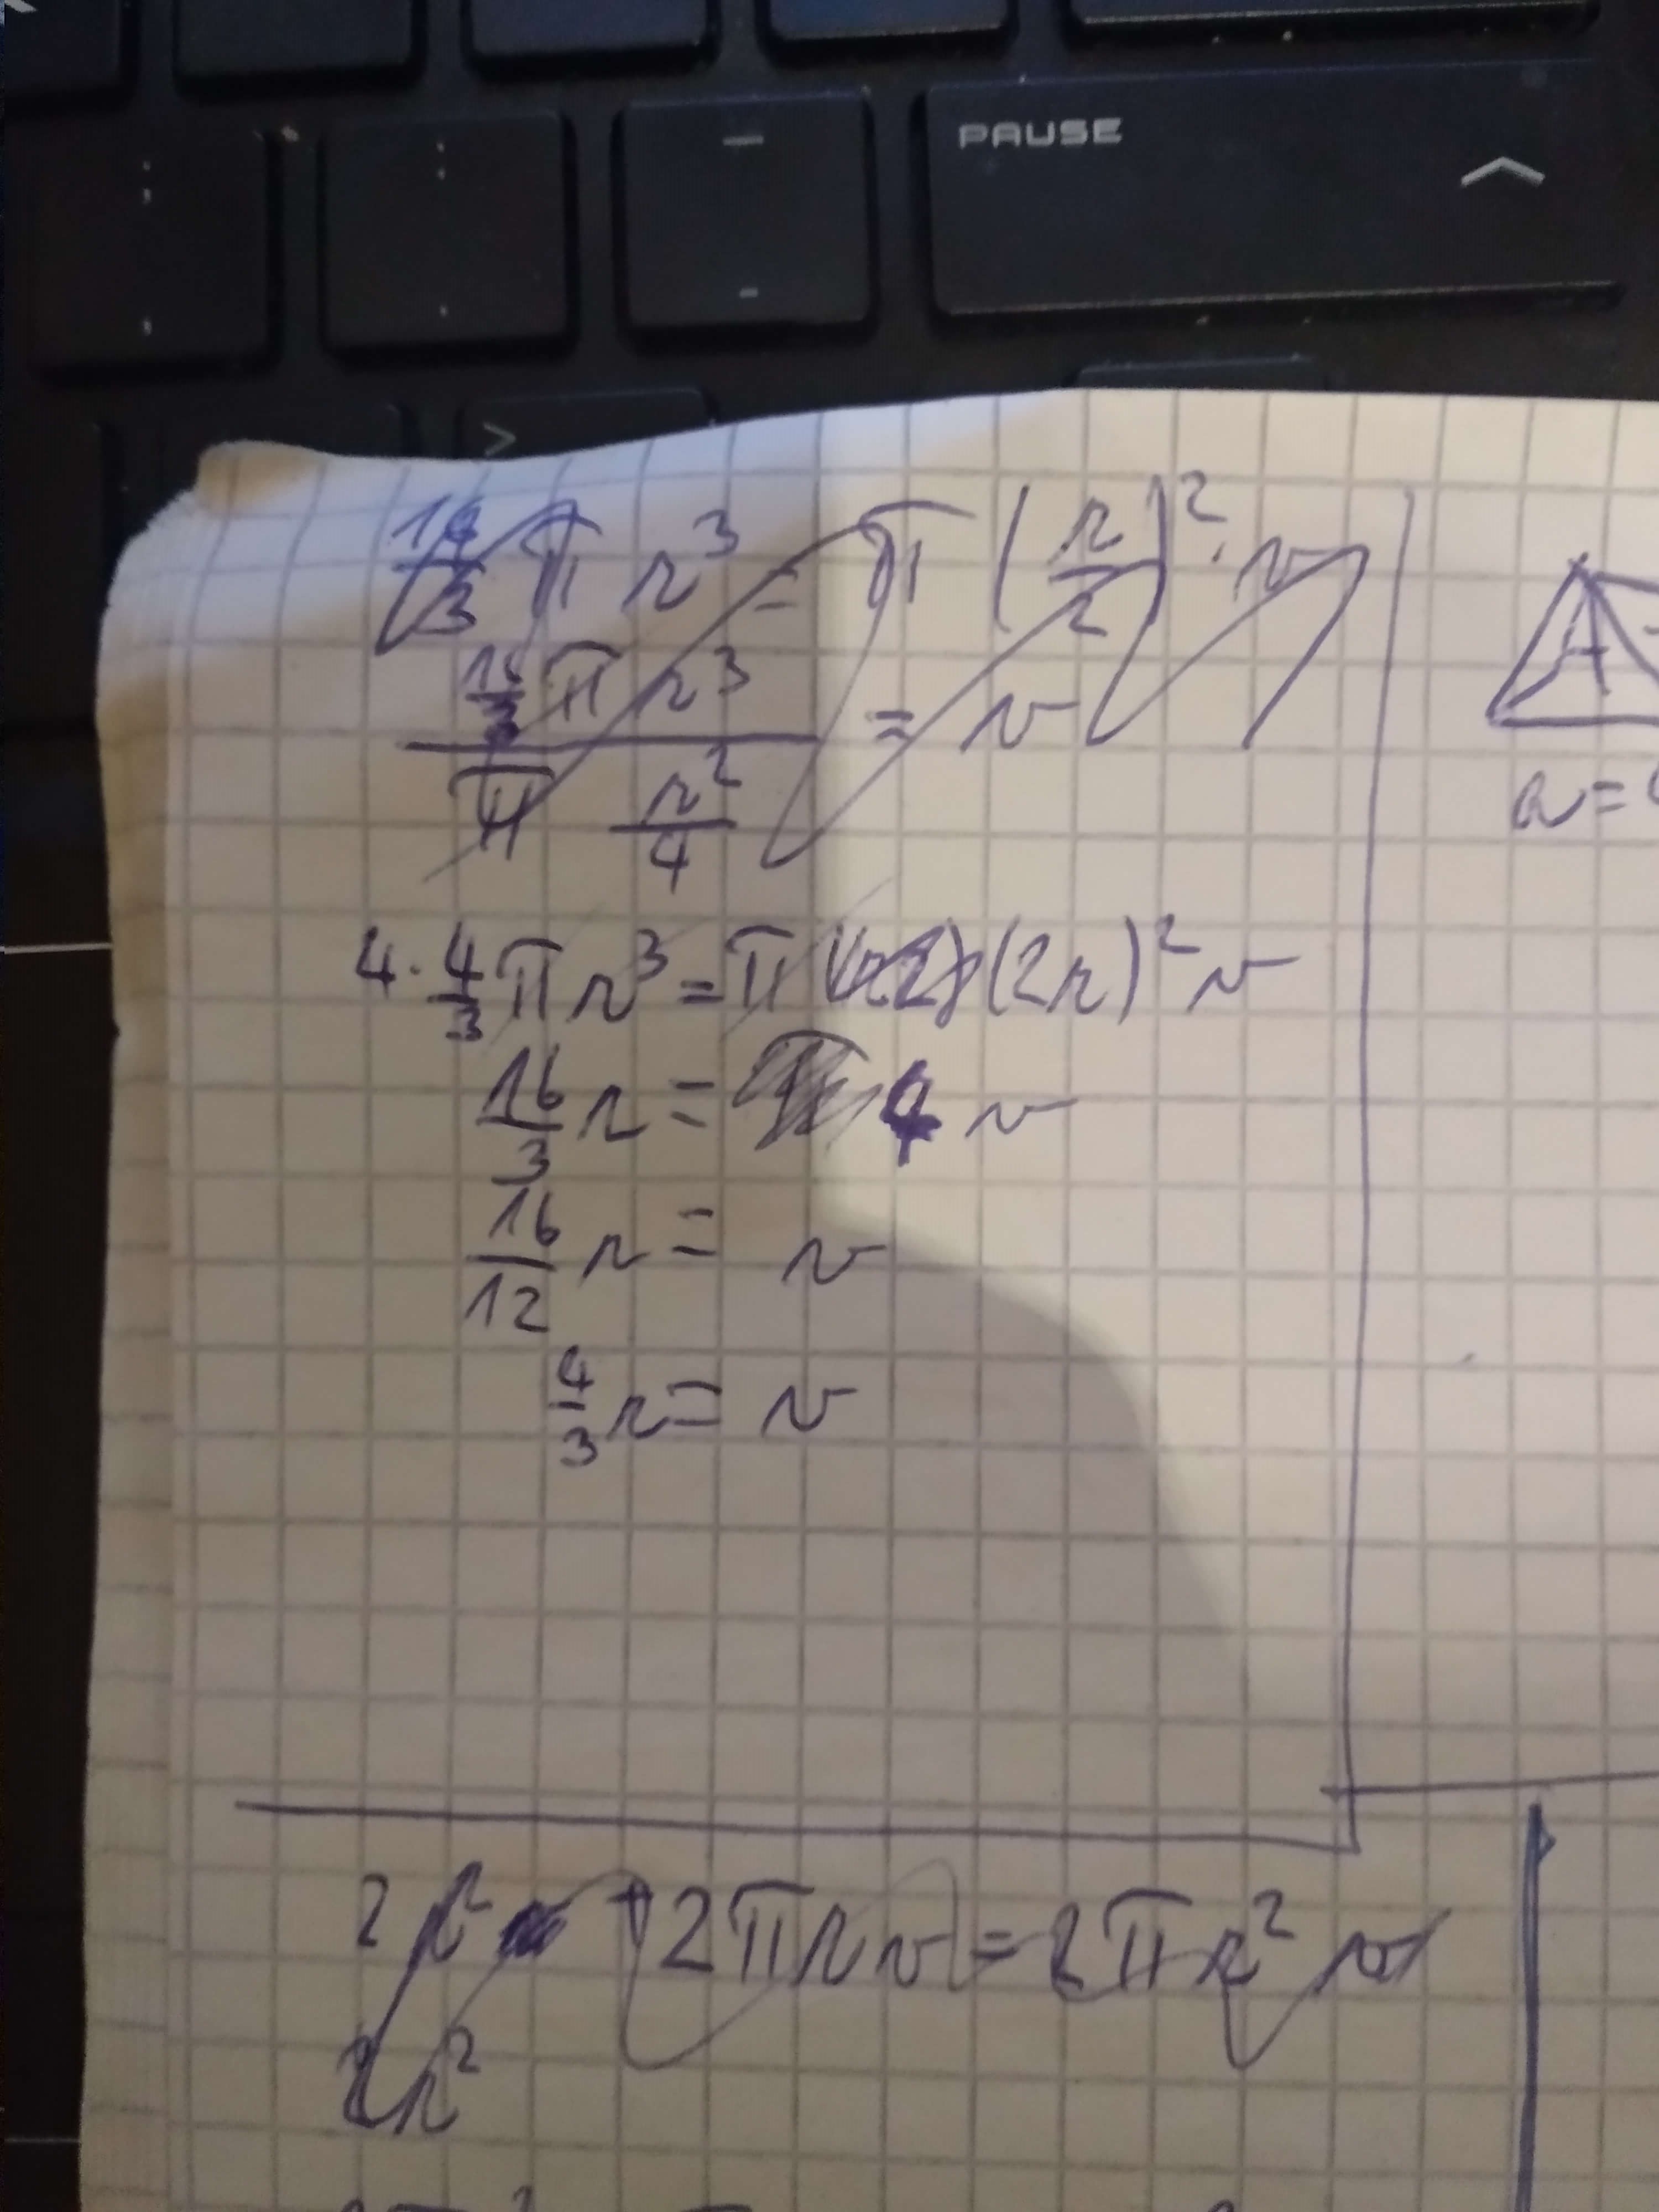 PAUSE
16/3 π r³ = π (r/2)² · v
16/3 π r³ / π r²/4 = v
4 · 4/3 π r³ = π (2r)² v
16/3 r = 4 v
16/12 r = v
4/3 r = v
a =
2πrv = 2πr² v
2r²